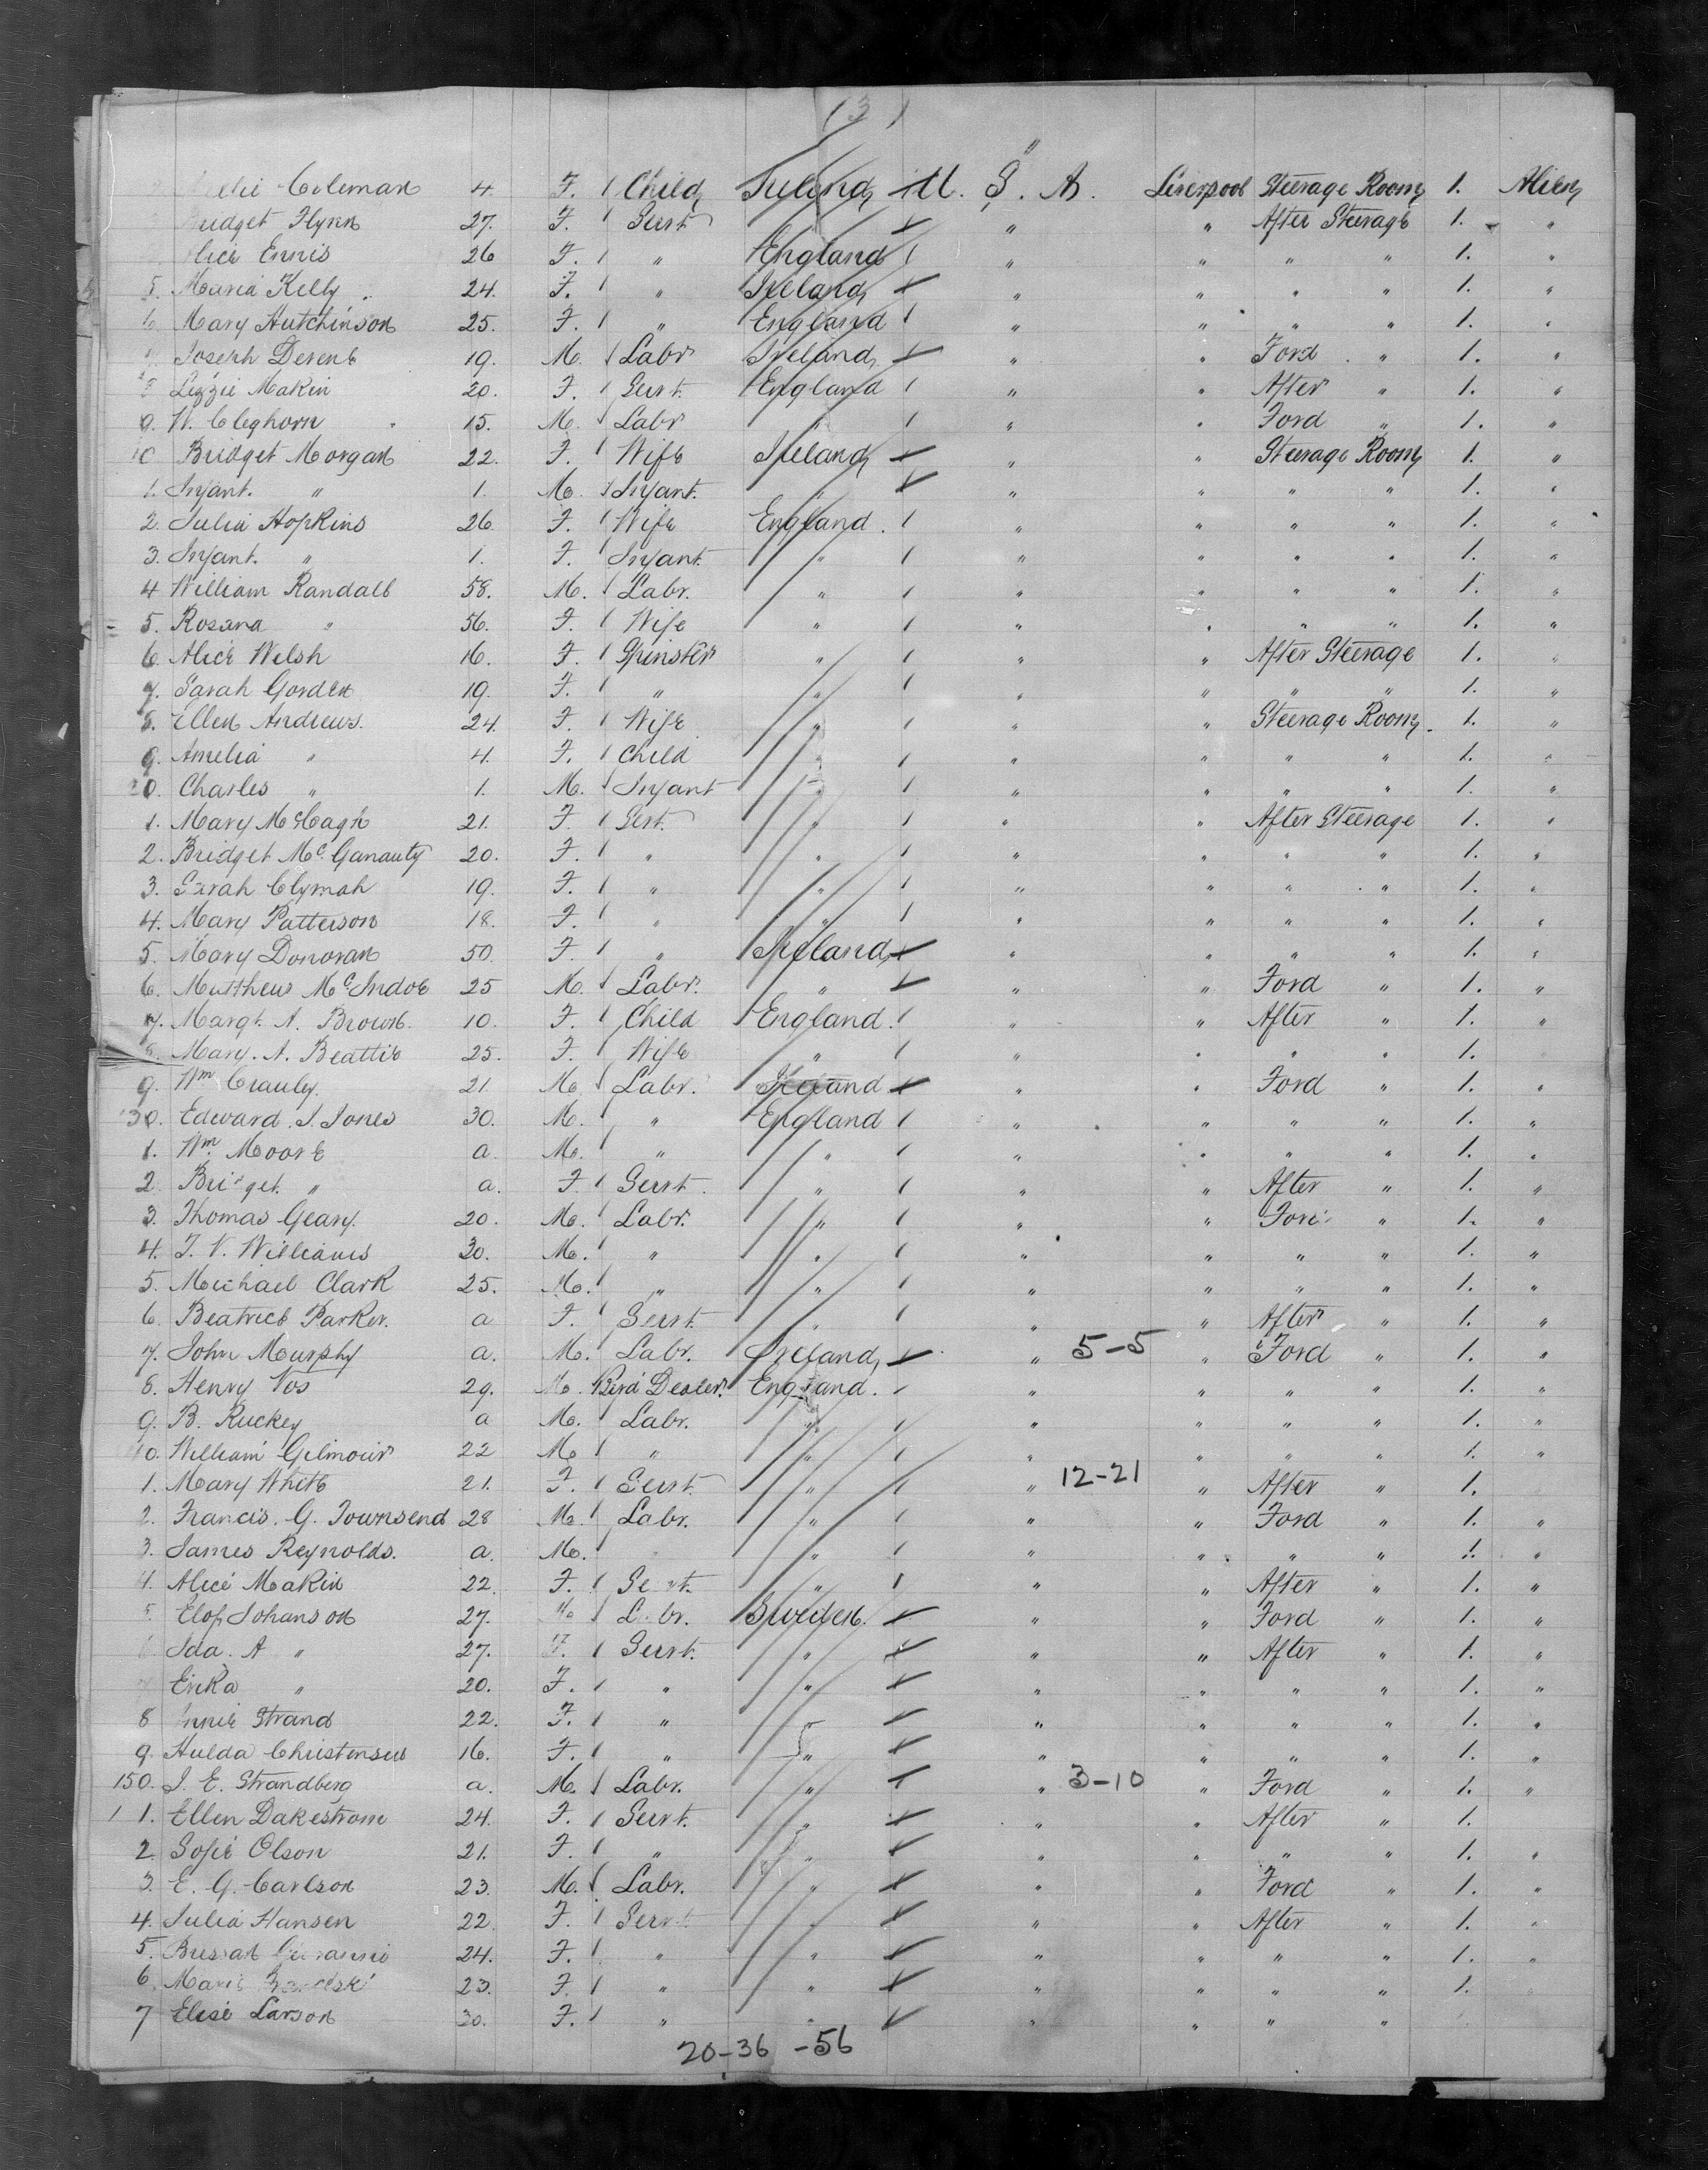 (3)
"
Coleman 4. F. Child Ireland U. S. A. Liverpool Steerage Room 1. Alien
Bridget Flynn 27. F. Servt " " " After Steerage 1. "
Alice Ennis 26 F. " England " " " " 1. "
5. Maria Kelly 24. F. " Ireland " " " " 1. "
6. Mary Hutchinson 25. F. " England " " " " 1. "
7. Joseph Devene 19. M. Labr Ireland " " Ford " 1. "
8 Lizzie Makin 20. F. Servt. England " " After " 1. "
9. W. Cleghorn 15. M. Labr " " " Ford " 1. "
10 Bridget Morgan 22. F. Wife Ireland " " Steerage Room 1. "
1. Infant. " 1. M. Infant. " " " " " 1. "
2. Julia Hopkins 26. F. Wife England. " " " " 1. "
3. Infant. " 1. F. Infant. " " " " " 1. "
4 William Randall 58. M. Labr. " " " " " 1. "
5. Rosana " 56. F. Wife " " " " " 1. "
6. Alice Welsh 16. F. Spinster " " " After Steerage 1. "
7. Sarah Gorden 19. F. " " " " " " 1. "
8. Ellen Andrews. 24 F. Wife " " " Steerage Room. 1. "
9. Amelia " 4. F. Child " " " " " 1. "
20. Charles " 1. M. Infant " " " " " 1. "
1. Mary McHagh 21. F. Sert. " " " After Steerage 1. "
2. Bridget Mc Ganauty 20. F. " " " " " " 1. "
3. Sarah Clymah 19. F. " " " " " " 1. "
4. Mary Patterson 18. F. " " " " " " 1. "
5. Mary Donovan 50. F. " Ireland " " " " 1. "
6. Matthew McIndoe 25 M. Labr. " " " Ford " 1. "
7. Margt. A. Brown. 10. F. Child England. " " After " 1. "
8. Mary. A. Beattie 25. F. Wife " " " " " 1.
9. Wm Crauley. 21. M. Labr. Ireland " " Ford " 1. "
30. Edward. J. Jones 30. M. " England " " " " 1. "
1. Wm. Moore a. M. " " " " " " 1. "
2. Bridget. " a. F. Servt. " " " After " 1. "
3. Thomas Geary. 20. M. Labr. " " " Ford " 1. "
4. T. V. Williams 30. M. " " " " " " 1. "
5. Michael Clark 25. M. " " " " " " 1. "
6. Beatrice Parker. a F. Servt. " " " After " 1. "
7. John Murphy a. M. Labr. Ireland " 5-5 " Ford " 1. "
8. Henry Vos 29. M. Bird Dealer. England. " " " " 1. "
9. B. Ruckey a M. Labr. " " " " " 1. "
40. William Gilmour 22 M " " " " " " 1. "
1. Mary White 21. F. Servt. " " 12-21 " After " 1.
2. Francis. G. Townsend 28 M. Labr. " " " Ford " 1. "
3. James Reynolds. a. M. " " " " " 1. "
4. Alice Makin 22. F. Servt. " " " After " 1. "
5. Elof Johanson 27. M Labr. Sweden. " " Ford " 1. "
6 Ida. A " 27. F. Servt. " " " After " 1. "
Erika " 20. F. " " " " " " 1. "
8 Annie Strand 22. F. " " " " " " 1. "
9. Hulda Christensen 16. F. " " " " " " 1. "
150. J. E. Strandberg a. M. Labr. " " 3-10 " Ford " 1. "
1 1. Ellen Dakestrom 24. F. Servt. " " " After " 1.
2. Sofie Olson 21. F. " " " " " " 1. "
3. E. G. Carlson 23. M. Labr. " " " Ford " 1. "
4. Julia Hansen 22. F. Servt " " " After " 1. "
5. 24. F. " " " " " " 1. "
6. Marie 23. F. " " " " " " 1.
7 Elise Larson 30. F. " " " " " "
20-36 -56